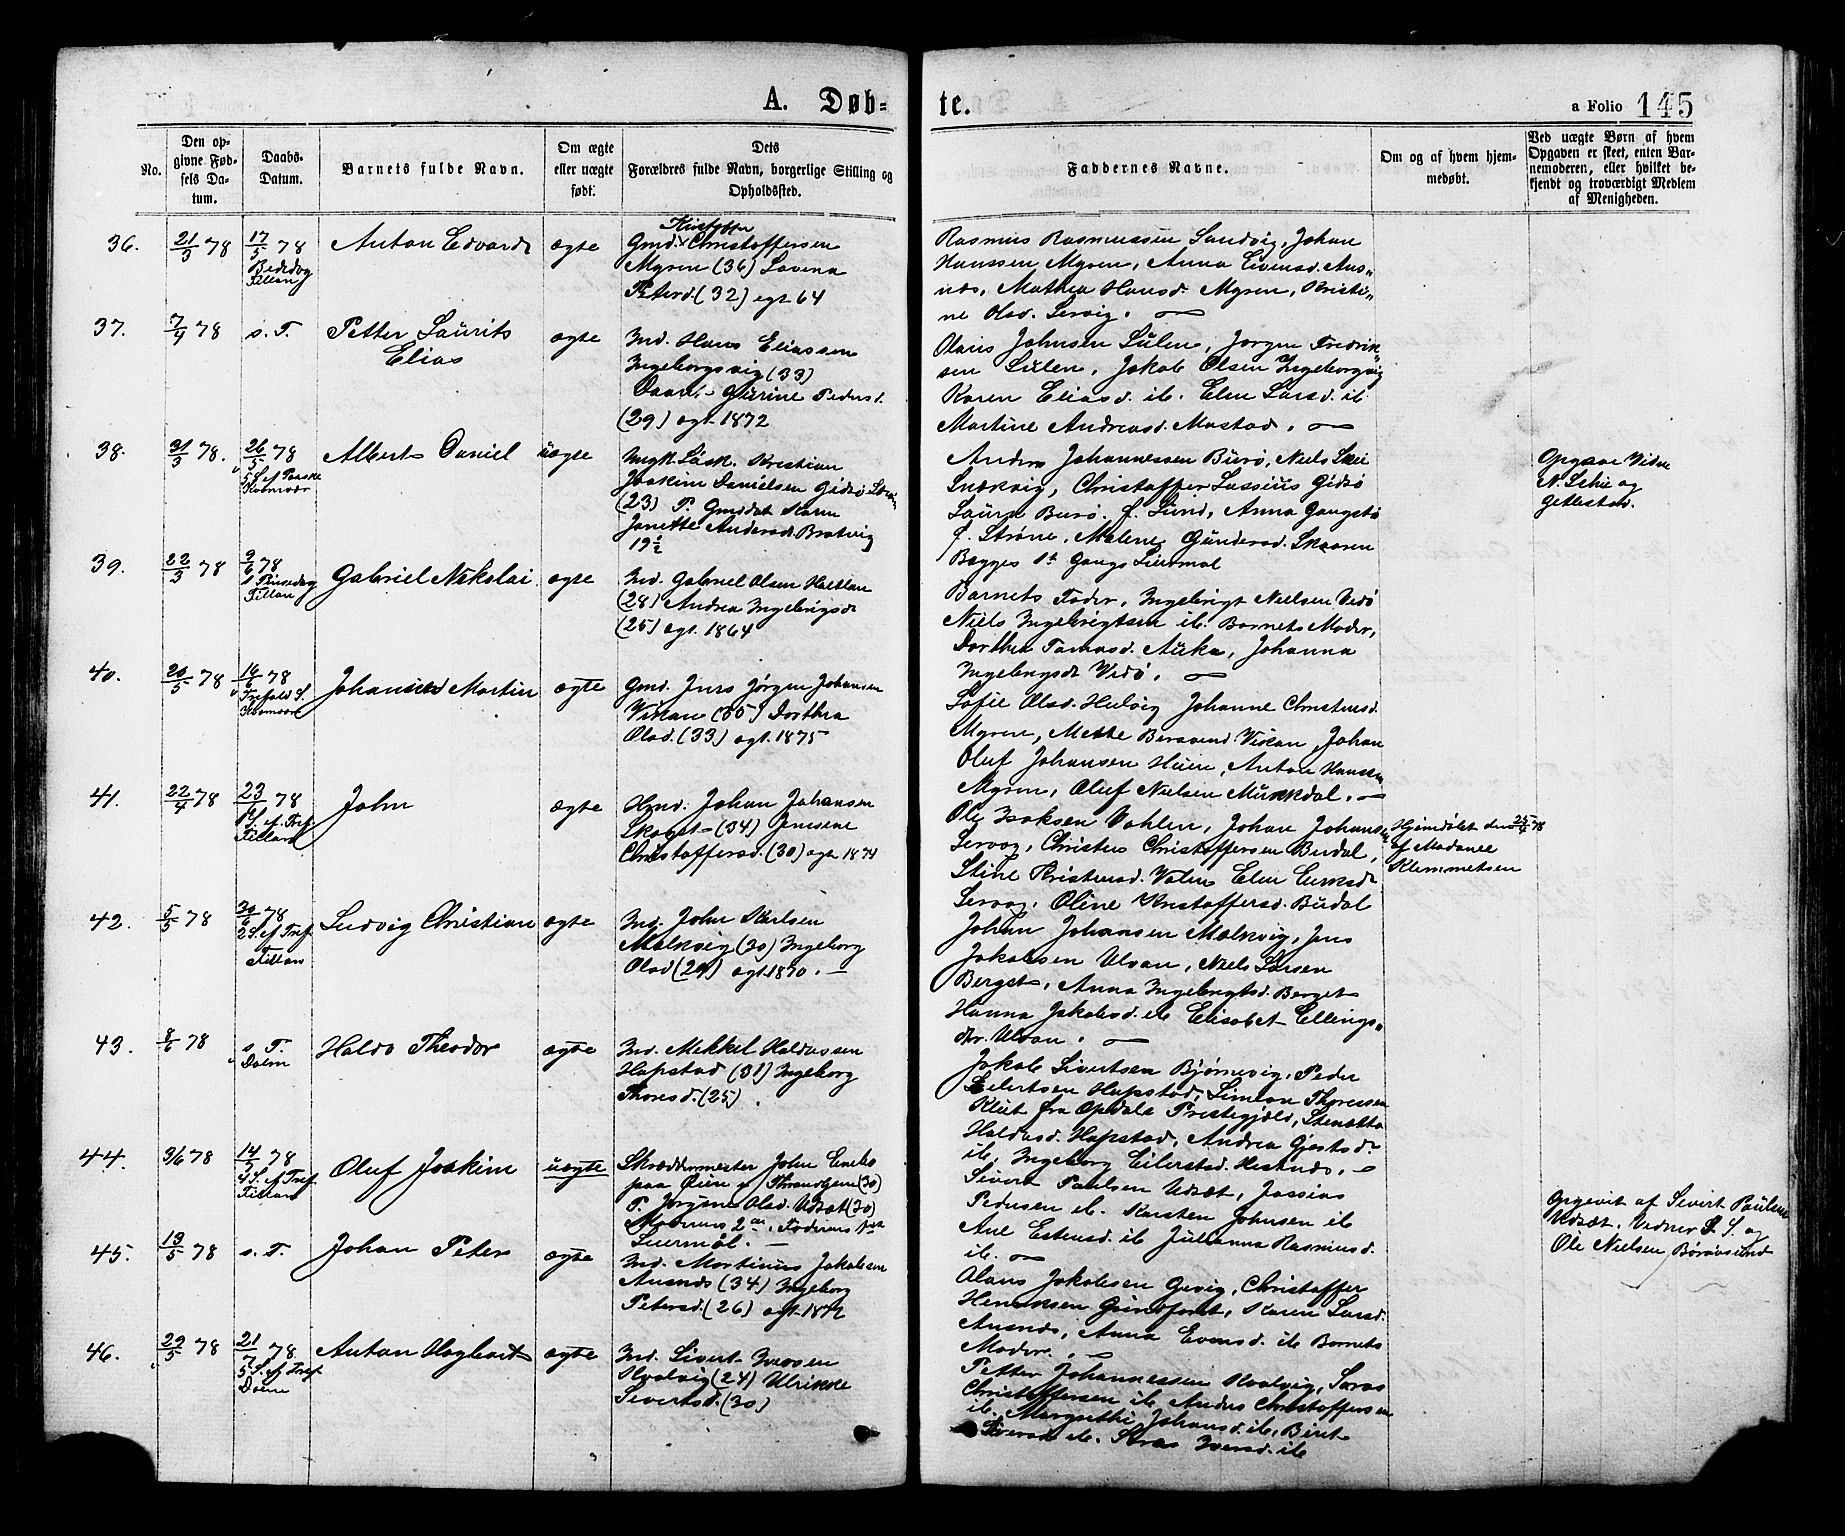 A. Døb-
te.
a Folio 145
No.
Den op-
givne Fød-
sels Da-
tum.
Daabs-
Datum.
Barnets fulde Navn.
Om ægte
eller uægte
født.
Dets
Forældres fulde Navn, borgerlige Stilling og
Opholdssted.
Faddernes Navne.
Om og af hvem hjem-
medøbt.
Ved uægte Børn af hvem
Opgaven er skeet, enten Bar-
nemoderen, eller hvilket be-
kjendt og troværdigt Medlem
af Menigheden.
36.
21/3 78
17/5 78
Bededag
Fillan
Anton Edvard
ægte
Gmd. Christoffersen
Myren (36) Lovena
Petersd. (32) egt 64
Rasmus Rasmussen Sandvig, Johan
Hanssen Myren, Anna Evensd. Aus-
nes, Mathea Hansd. Myren, Kristi-
ne Olsd. Servig.
37.
7/4 78
s. T.
Petter Laurits
Elias
ægte
Ind. Hans Eliassen
Ingeborgvig (33)
Gurine Pedersd.
(29) egt. 1872
Olaus Johnsen Sulen, Jørgen Fredrik-
sen Sulen, Jakob Olsen Ingeborgvig
Karen Eliasd. ib. Elen Larsd. ib
Martine Andreasd. Mastad.
38.
31/3 78.
26/5 78
5 S. ef Paaske
Albert Daniel
uægte
Ungk. Kristian
Joakim Danielsen Gidsø
(23) P. Karen
Janette Andersd. Bratvig
19 1/2
Anders Johannessen Burø, Niels
Snekvig, Christoffer Lassius Gidsø
Laura Burø f. Lund, Anna
f. Strøne, Malene Gundersd. Skaaren
Begges 1ste Gangs Leiermaal
Opgave Vidne
N. og
Gettestad.
39.
22/3 78
9/6 78
1 Pinsedag
Fillan
Gabriel Nikolai
ægte
Ind. Gabriel Olsen
(28) Andrea Ingebrigtsd.
(25) egt. 1864
Barnets Fader, Ingebrigt Nielsen Vedø
Niels Ingebrigtsen ib. Barnets Moder,
Dorthea Tomasd. Auka, Johanna
Ingebrigtsd. Vedø.
40.
20/5 78
16/6 78
Trefold. S.
Johannes Martin
ægte
Gmd. Jens Jørgen Johansen
Vikan (35) Dorthea
Olsd. (33) egt. 1875
Sofie Olsd. Helvig Johanne Christensd.
Myren, Mette Vikan, Johan
Oluf Johansen, Anton Hanssen
Myren, Oluf Nielsen Munkdal.
41.
22/4 78
23/6 78
1 S. ef. Tref.
Fillan
John
ægte
Johan Johansen
Skaget (34) Jensine
Christoffersd. (30) egt 1874
Ole Isaksen Vahlen, Johan Johansen
Servog, Christen Christoffersen Budal,
Stine Kristensd. Valen Elen
Servog, Oline Kristoffersd. Budal
Hjemdøbt den 25/4 78
af Madame
Klemmetsen
42.
5/5 78
30/6 78
2 S. ef Tref.
Fillan
Ludvig Christian
ægte
Ind. John Karlsen
Malkvig (30) Ingeborg
Olsd (29) egt 1870.
Johan Johansen Malkvig, Jens
Jakobsen Ulvan, Niels Larsen
Berget, Anna Ingebrigtsd. Berget
Hanna Jakobsd. ib Elisabet Ellings-
dtr. Ulvan.
43.
8/6 78
s. T.
Dolm
Haldo Theodor
ægte
Ind. Mikkel Haldossen
Hopstad (31) Ingeborg
Thoresd. (25).
Jakob Sivertsen Bjørnevig, Peder
Eilertsen Hopstad, Simeon Thoressen
Klet fra Opdals Præstegjæld,
Haldosd. Hopstad, Andrea
ib, Ingeborg Eilertsd. Hestnes.
44.
3/6 78
14/7 78
4 S. ef Tref.
Fillan
Oluf Joakim
uægte
Skræddermester John
paa Øien v/ Throndhjem (30)
P. Olsd. Udsæt (30)
Moderens 2den, Faderens 1ste
Leiermaal.
Sivert Paulsen Udsæt, Jossias
Pedersen ib. Karsten Johnsen ib
Ane Estensd. ib Julianna Rasmusd.
ib.
Opgevet af Sivert Paulsen
Udsæt. Vidner P. S. og
Ole Nielsen Børøsund
45.
19/5 78
s. T.
Johan Peter
ægte
Ind. Martinus Jakobsen
Ausnes (34) Ingeborg
Petersd. (26) egt 1872
Olaus Jakobsen Gjevig, Christoffer
Henriksen Grindfaret, Karen Larsd.
Ausnes, Anna Evensd. ib Barnets
Moder.
46.
29/5 78
21/7 78
5 S. ef Tref.
Dolm
Anton Hagbart
ægte
Ind. Sivert Iversen
Kvalvig (24) Ulrikke
Sivertsd. (30)
Petter Johannessen Kvalvig, Lars
Christoffersen ib Anders Christoffersen
ib. Margrethe Johansd. ib, Berit
Iversd. ib. Iversd. ib